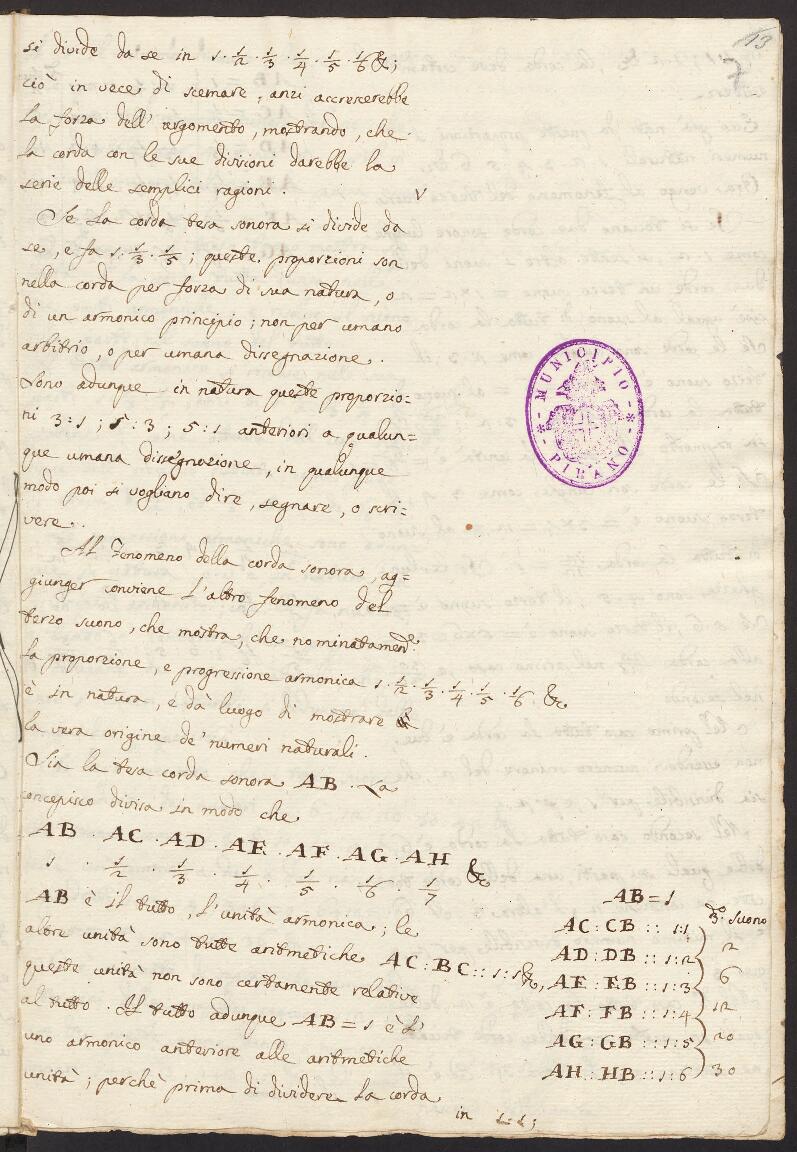 13
7
si divide da se in 1 · 1/2 · 1/3 · 1/4 · 1/5 · 1/6 &;
ciò in vece di scemare, anzi accrescerebbe
la forza dell' argomento, mostrando, che
la corda con le sue divisioni darebbe la
serie delle semplici ragioni. V
Se la corda tesa sonora si divide da
se, e fa 1 · 1/3 · 1/5; queste proporzioni son
nella corda per forza di sua natura, o
di un armonico principio; non per umano
arbitrio, o per umana dissegnazione.
Sono adunque in natura queste proporzio=
ni 3:1; 5:3; 5:1 anteriori a qualun=
que umana dissegnazione, in qualunque
modo poi si vogliano dire, segnare, o scri=
vere.
Al Fenomeno della corda sonora, ag=
giunger conviene l'altro fenomeno del
terzo suono, che mostra, che nominatamen.te
la proporzione, e progressione armonica 1 · 1/2 · 1/3 · 1/4 · 1/5 · 1/6 &c
è in natura, e dà luogo di mostrare
la vera origine de' numeri naturali.
Sia la tesa corda sonora AB. La
concepisco divisa in modo che
AB · AC · AD · AE · AF · AG · AH &c
1 · 1/2 · 1/3 · 1/4 · 1/5 · 1/6 · 1/7
AB è il tutto, l'unità armonica; le
altre unità sono tutte aritmetiche AC:BC::1:1&,
queste unità non sono certamente relative
al tutto. Il tutto adunque AB=1 è l'
uno armonico anteriore alle aritmetiche
unità; perchè prima di dividere la corda
in 1:1;
AB=1
3.o suono
AC:CB::1:1
2
AD:DB::1:2
6
AE:EB::1:3
12
AF:FB::1:4
20
AG:GB::1:5
30
AH:HB::1:6
MUNICIPIO
PIRANO